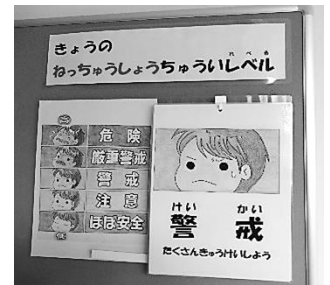 きょうの
ねっちゅうしょうちゅういレベル
れべる
危険
厳重警戒
警戒
注意
ほぼ安全
けいかい
警戒
たくさんきゅうけいしよう